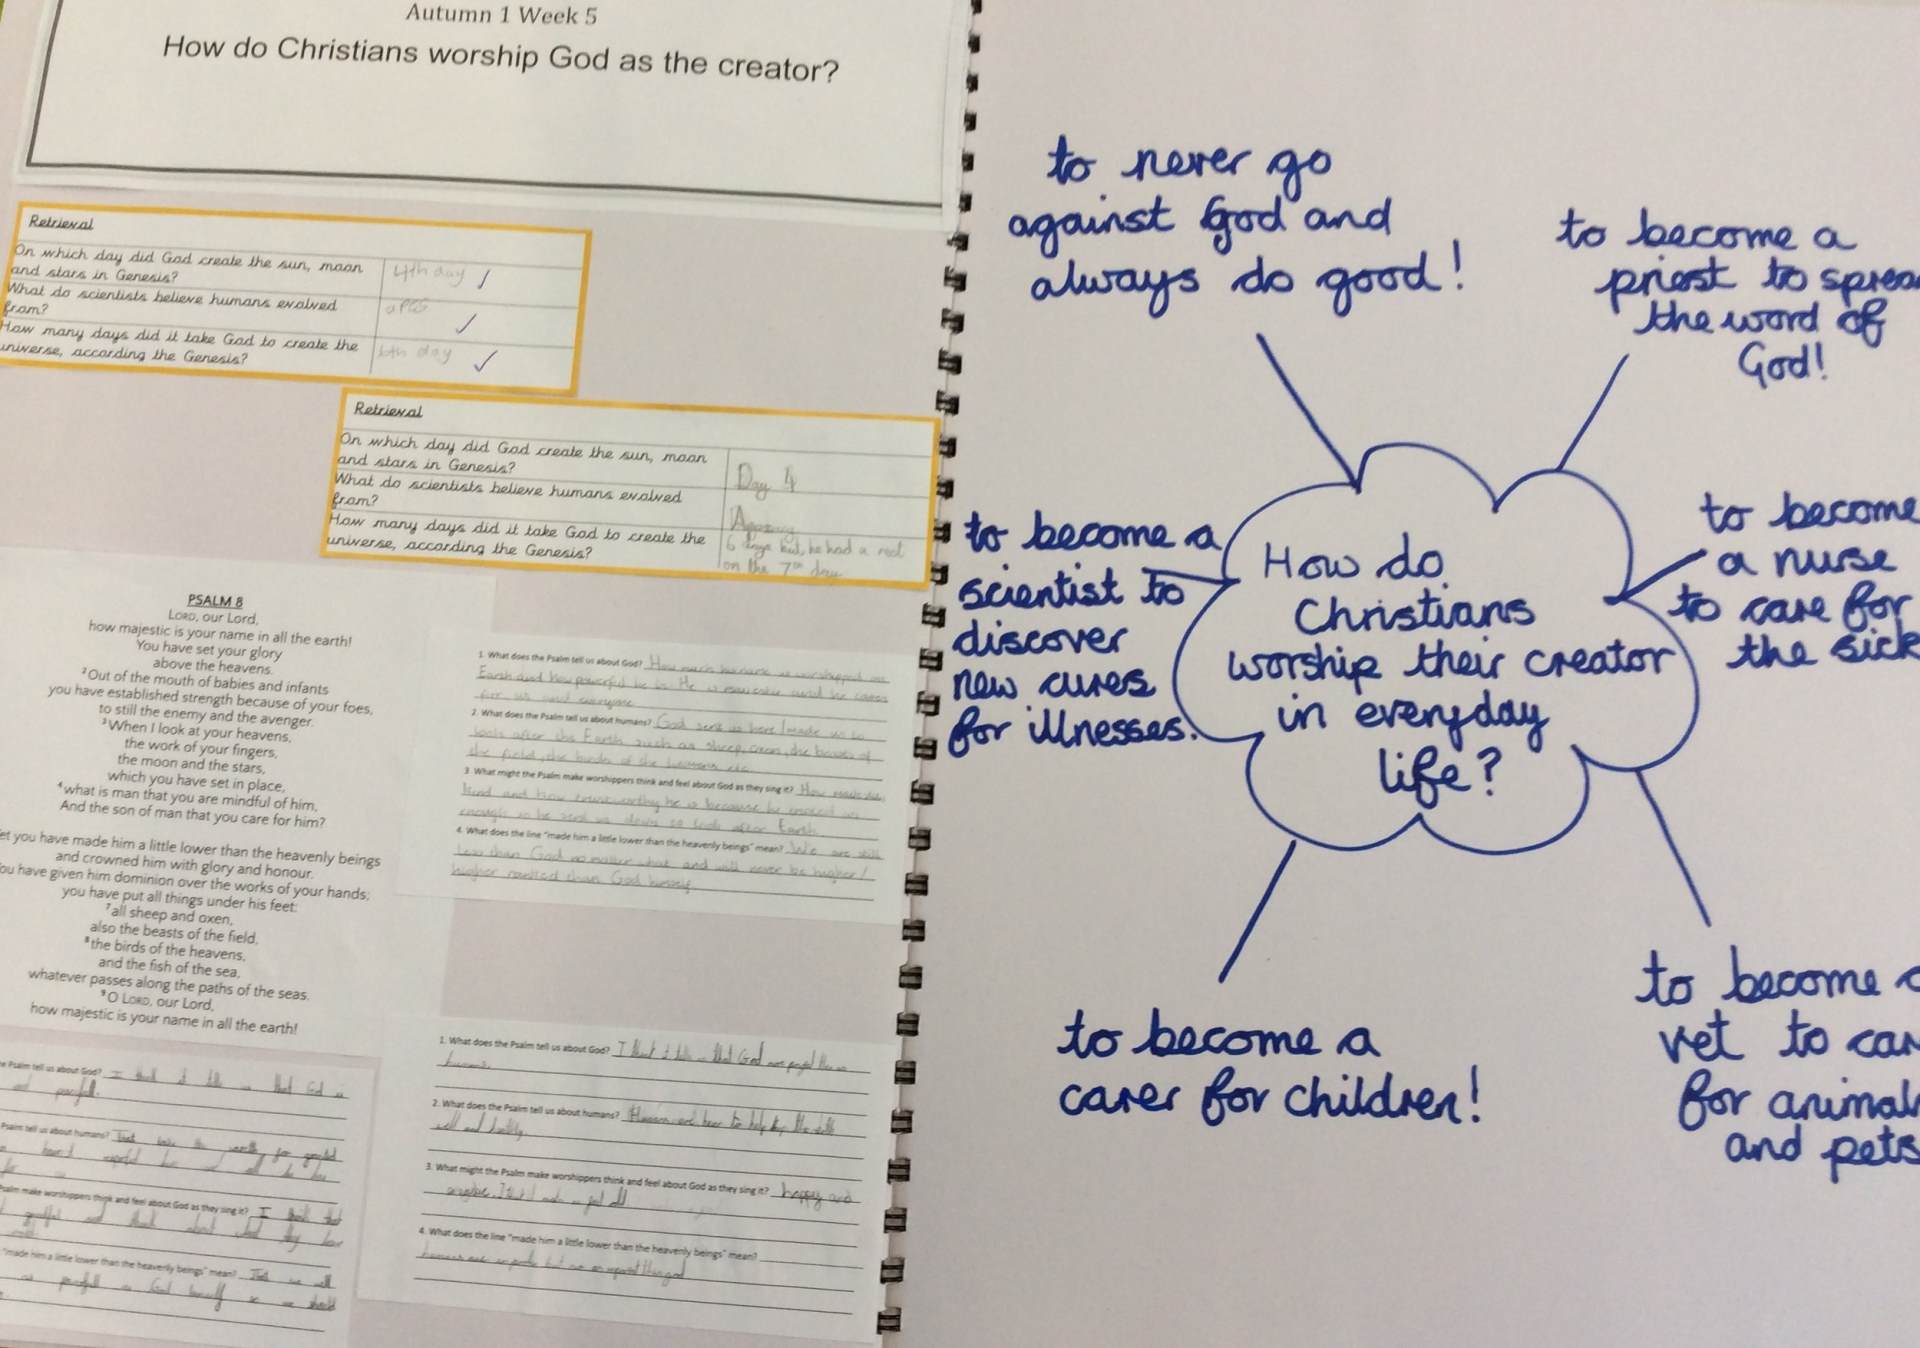 Autumn 1 Week 5
How do Christians worship God as the creator?
Retrieval
On which day did God create the sun, moon
and stars in Genesis?
4th day ✓
What do scientists believe humans evolved
from?
apes ✓
How many days did it take God to create the
universe, according the Genesis?
6th day ✓
Retrieval
On which day did God create the sun, moon
and stars in Genesis?
Day 4
What do scientists believe humans evolved
from?
How many days did it take God to create the
universe, according the Genesis?
6 days but, he had a rest
on the 7th day
PSALM 8
LORD, our Lord,
how majestic is your name in all the earth!
You have set your glory
above the heavens.
2Out of the mouth of babies and infants
you have established strength because of your foes,
to still the enemy and the avenger.
3When I look at your heavens,
the work of your fingers,
the moon and the stars,
which you have set in place,
4what is man that you are mindful of him,
And the son of man that you care for him?
et you have made him a little lower than the heavenly beings
and crowned him with glory and honour.
ou have given him dominion over the works of your hands;
you have put all things under his feet:
7all sheep and oxen,
also the beasts of the field,
8the birds of the heavens,
and the fish of the sea,
whatever passes along the paths of the seas.
9O LORD, our Lord,
how majestic is your name in all the earth!
1. What does the Psalm tell us about God? How much he is worshipped on
Earth and how powerful he is. He is and he cares
for us and everyone
2. What does the Psalm tell us about humans? God sent us here / made us to
look after the Earth such as sheep, oxen, the beasts of
the field, the birds of the heavens etc
3. What might the Psalm make worshippers think and feel about God as they sing it? How
kind and how trustworthy he is because he trusted us
enough to be sent us down to look after Earth
4. What does the line "made him a little lower than the heavenly beings" mean? We are still
less than God no matter what and will never be higher /
higher ranked than God himself
e Psalm tell us about God? I think it tells us that God is
Psalm tell us about humans? That
for us
Psalm make worshippers think and feel about God as they sing it? I think that
grateful and think about what they have
"made him a little lower than the heavenly beings" mean? That we
as God himself so we should
1. What does the Psalm tell us about God? I think it tells us that God
humans
2. What does the Psalm tell us about humans? Humans are here to help
well and
3. What might the Psalm make worshippers think and feel about God as they sing it? happy and
4. What does the line "made him a little lower than the heavenly beings" mean?
humans are
to never go
against God and
always do good!
to become a
priest to sprea
the word of
God!
to become a
scientist to
discover
new cures
for illnesses.
How do
Christians
worship their creator
in everyday
life?
to become
a nurse
to care for
the sick
to become a
carer for children!
to become a
vet to car
for animal
and pets